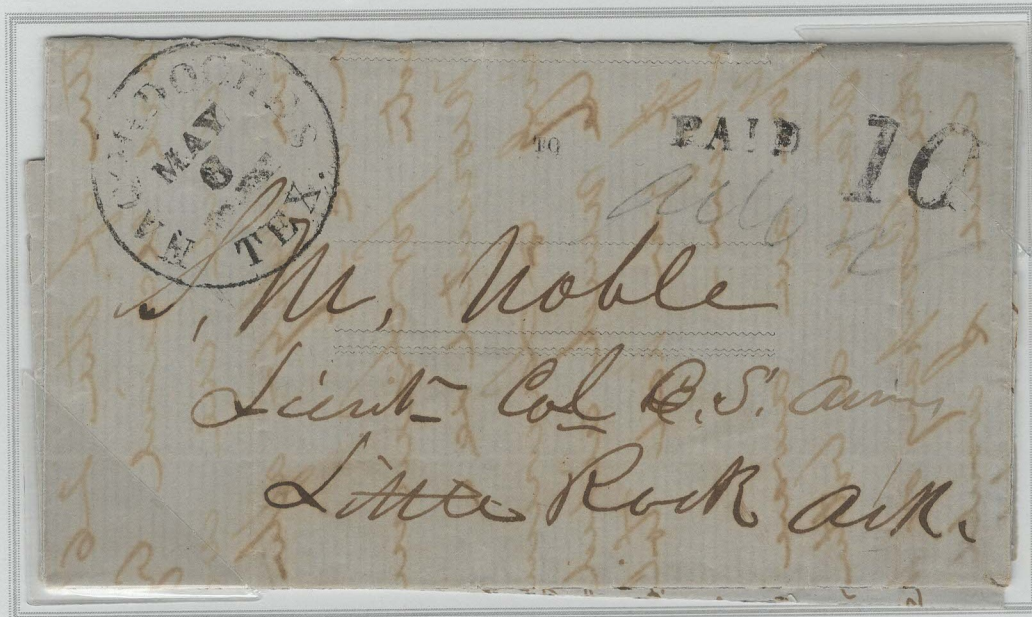 NACOGDOCHES
MAY
6
TEX.
TO
PAID 10
S, M, Noble
Lieut- Col C.S. Army
Little Rock Ark.